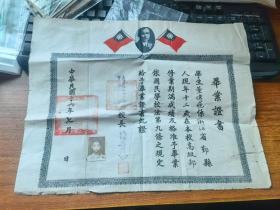 畢業證書
學生董鎮龍係浙江省鄞縣
人現年十二歲在本校高級部
修業期滿成績及格准予畢業
依國民學校法第九條之規定
給予畢業證書此證
校長
中華民國三十六年 月 日